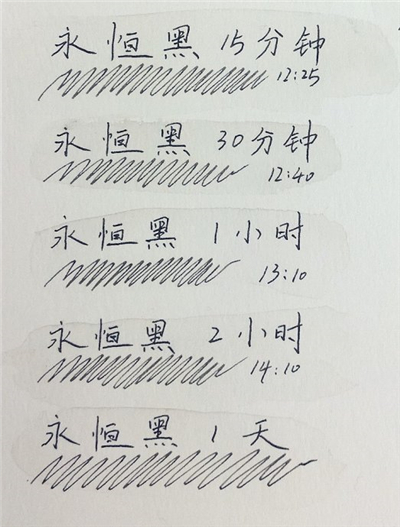 永恒黑 15分钟
12:25
永恒黑 30分钟
12:40
永恒黑 1小时
13:10
永恒黑 2小时
14:10
永恒黑 1天